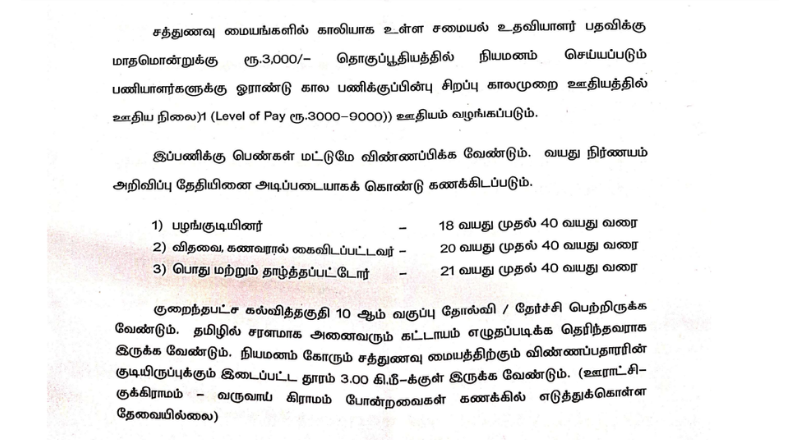 சத்துணவு மையங்களில் காலியாக உள்ள சமையல் உதவியாளர் பதவிக்கு
மாதமொன்றுக்கு ரூ.3,000/- தொகுப்பூதியத்தில் நியமனம் செய்யப்படும்
பணியாளர்களுக்கு ஓராண்டு கால பணிக்குப்பின்பு சிறப்பு காலமுறை ஊதியத்தில்
ஊதிய நிலை)1 (Level of Pay ரூ.3000-9000)) ஊதியம் வழங்கப்படும்.
இப்பணிக்கு பெண்கள் மட்டுமே விண்ணப்பிக்க வேண்டும். வயது நிர்ணயம்
அறிவிப்பு தேதியினை அடிப்படையாகக் கொண்டு கணக்கிடப்படும்.
1) பழங்குடியினர் - 18 வயது முதல் 40 வயது வரை
2) விதவை, கணவரால் கைவிடப்பட்டவர் - 20 வயது முதல் 40 வயது வரை
3) பொது மற்றும் தாழ்த்தப்பட்டோர் - 21 வயது முதல் 40 வயது வரை
குறைந்தபட்ச கல்வித்தகுதி 10 ஆம் வகுப்பு தோல்வி / தேர்ச்சி பெற்றிருக்க
வேண்டும். தமிழில் சரளமாக அனைவரும் கட்டாயம் எழுதப்படிக்க தெரிந்தவராக
இருக்க வேண்டும். நியமனம் கோரும் சத்துணவு மையத்திற்கும் விண்ணப்பதாரரின்
குடியிருப்புக்கும் இடைப்பட்ட தூரம் 3.00 கி.மீ-க்குள் இருக்க வேண்டும். (ஊராட்சி-
குக்கிராமம் - வருவாய் கிராமம் போன்றவைகள் கணக்கில் எடுத்துக்கொள்ள
தேவையில்லை)